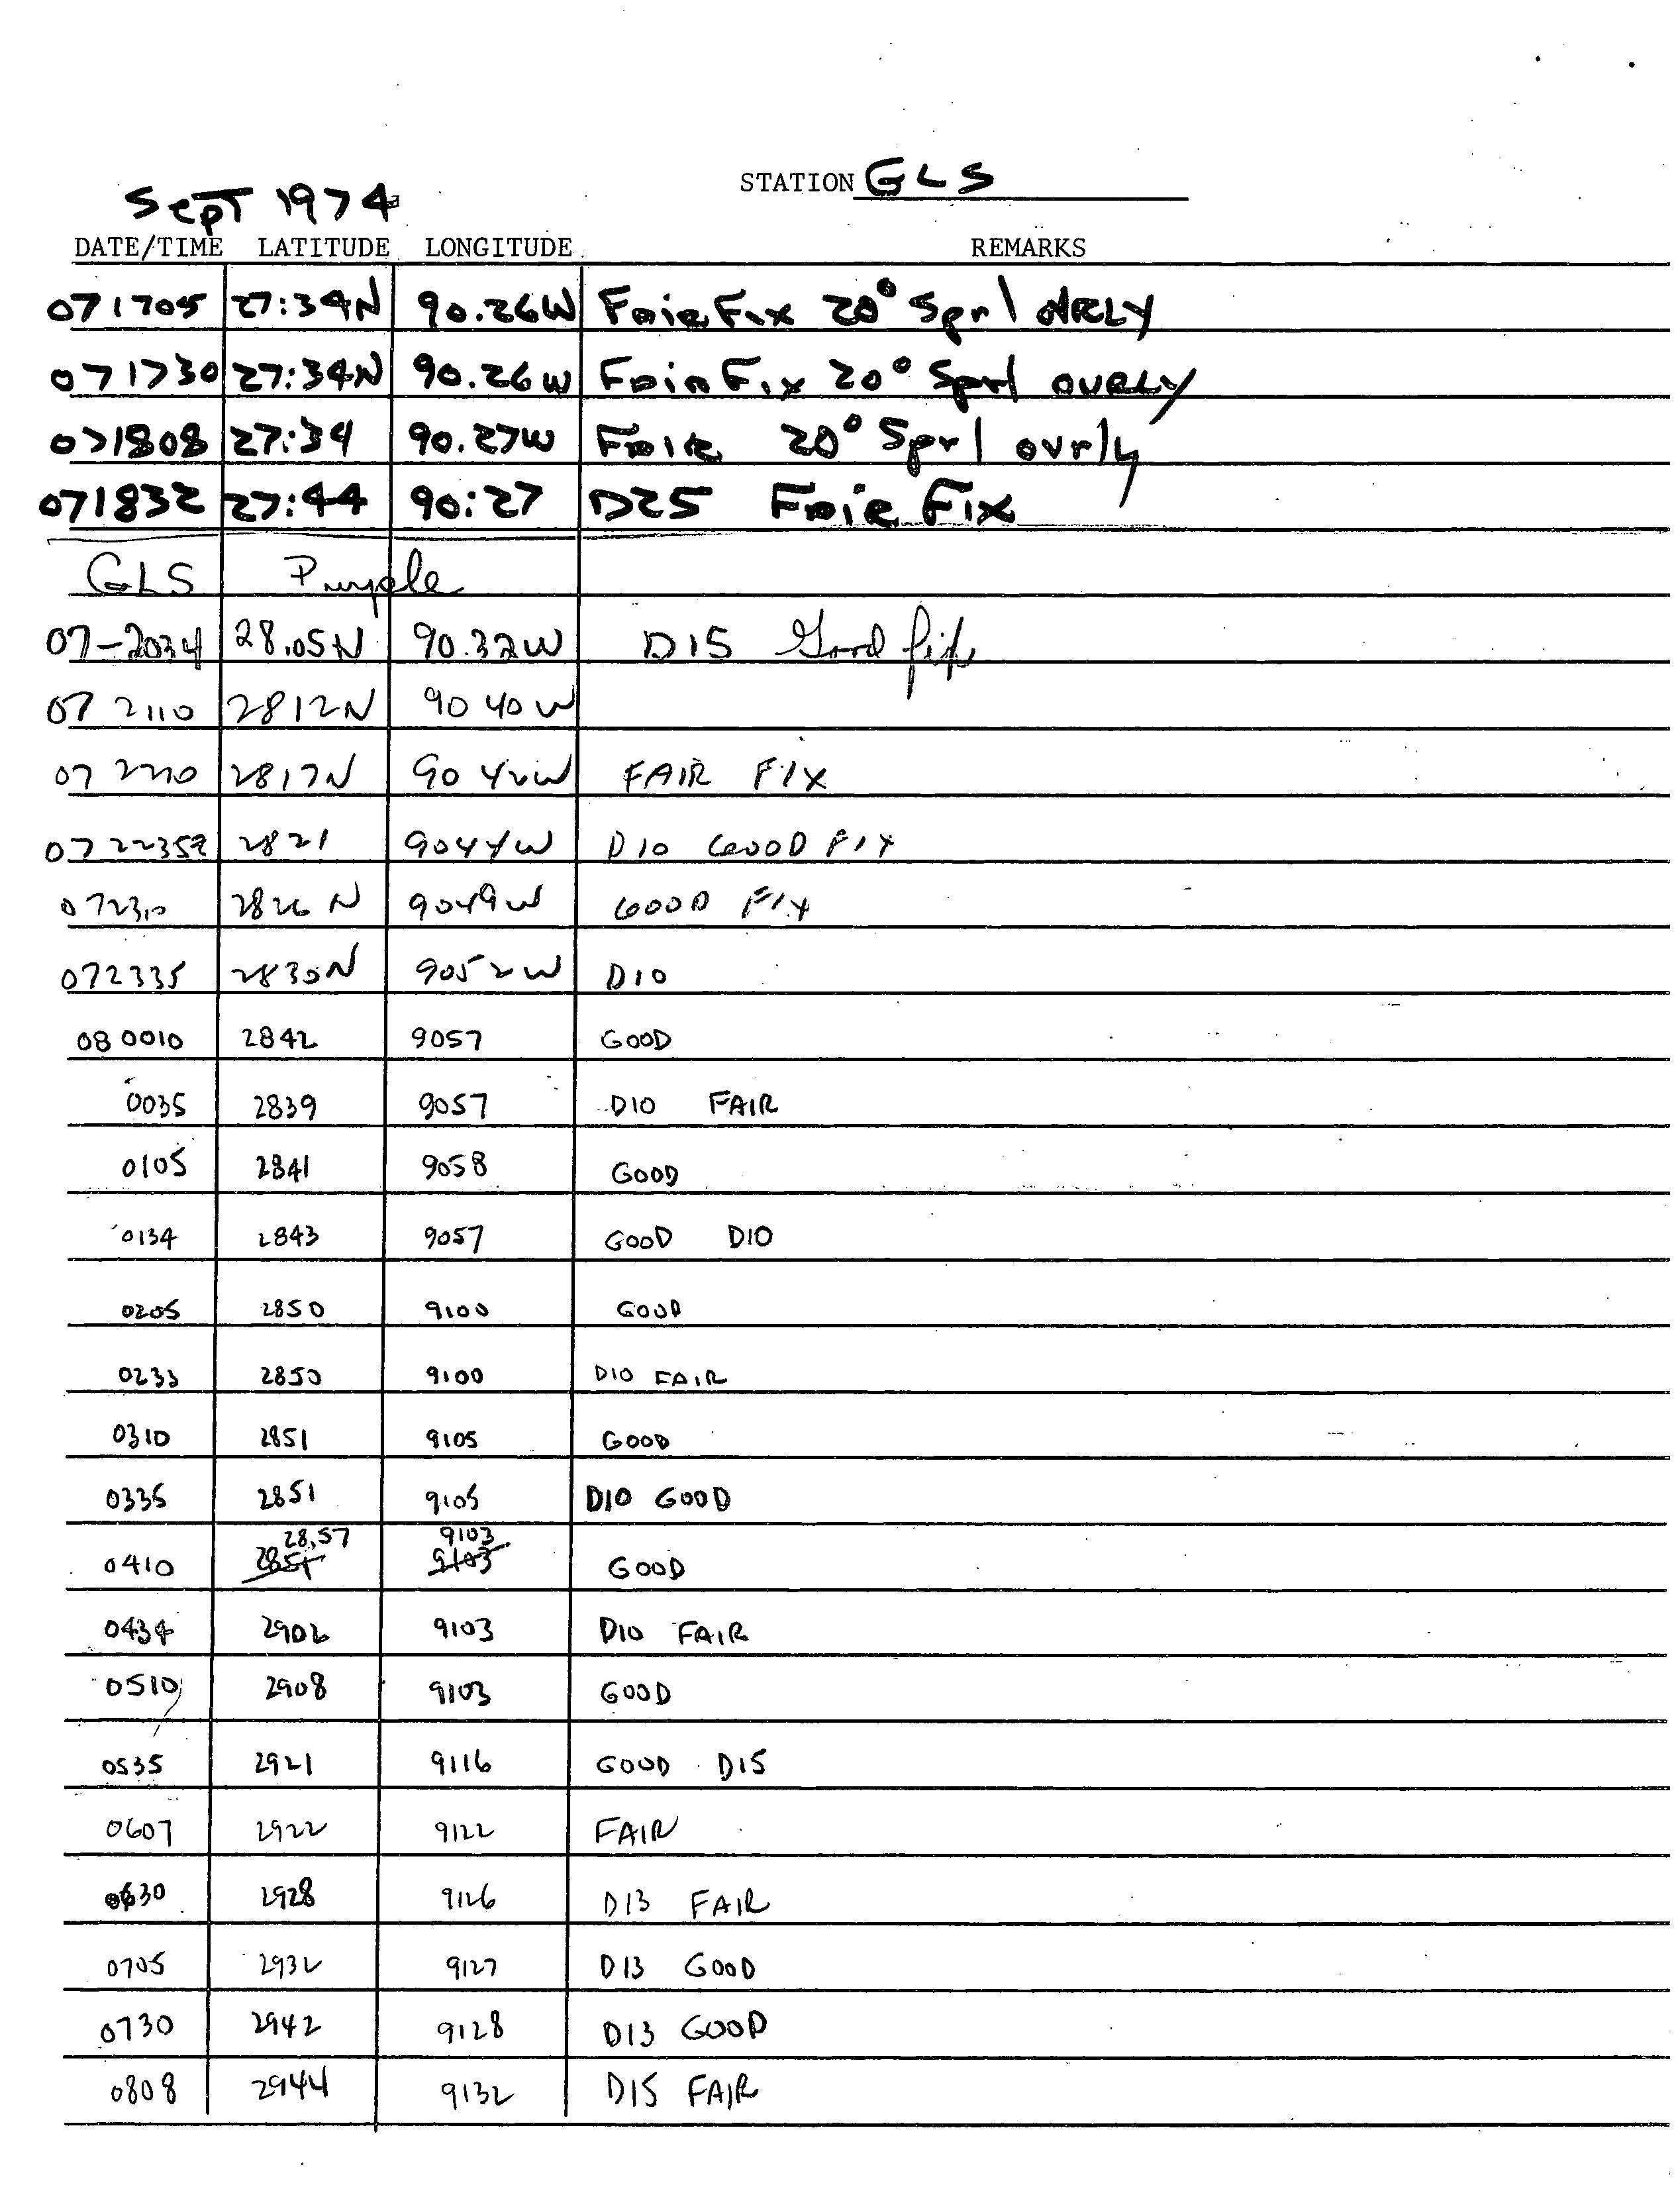 STATION GLS
Sept 1974
DATE/TIME LATITUDE LONGITUDE REMARKS
071705 27:34N 90.26W Fair Fix 20° Sprl OVRLY
071730 27:34N 90.26W Fair Fix 20° Sprl OVRLY
071808 27:34 90.27W Fair 20° Sprl ovrly
071832 27:44 90:27 D25 Fair Fix
GLS Purple
07-2034 28.05N 90.32W D15 Good fix
07 2110 2812N 90 40W
07 2210 2817N 90 42W FAIR FIX
07 2235Z 2821 9044W D10 GOOD FIX
072310 2826N 9049W GOOD FIX
072335 2830N 9052W D10
08 0010 2842 9057 GOOD
0035 2839 9057 D10 FAIR
0105 2841 9058 GOOD
0134 2843 9057 GOOD D10
0205 2850 9100 GOOD
0233 2850 9100 D10 FAIR
0310 2851 9105 GOOD
0335 2851 9105 D10 GOOD
28.57 9103
0410 2851 9103 GOOD
0434 2902 9103 D10 FAIR
0510 2908 9103 GOOD
0535 2921 9116 GOOD D15
0607 2922 9122 FAIR
0630 2928 9126 D13 FAIR
0705 2932 9127 D13 GOOD
0730 2942 9128 D13 GOOD
0808 2944 9132 D15 FAIR